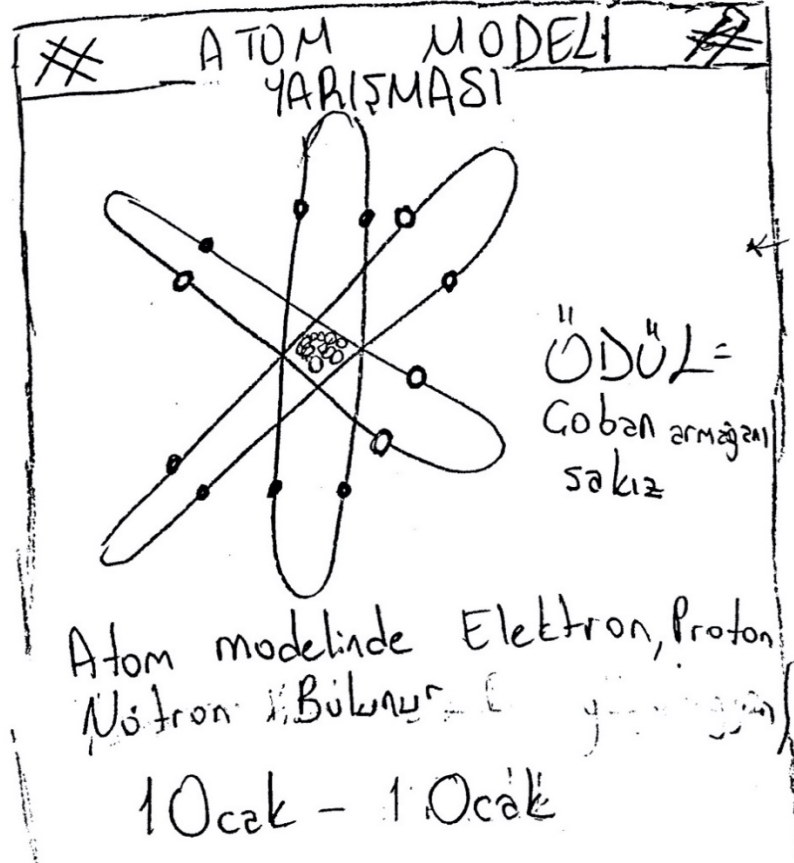 ATOM MODELİ
YARIŞMASI
ÖDÜL=
Çoban armağanı
sakız
Atom modelinde Elektron, Proton
Nötron Bulunur
1 Ocak - 1 Ocak